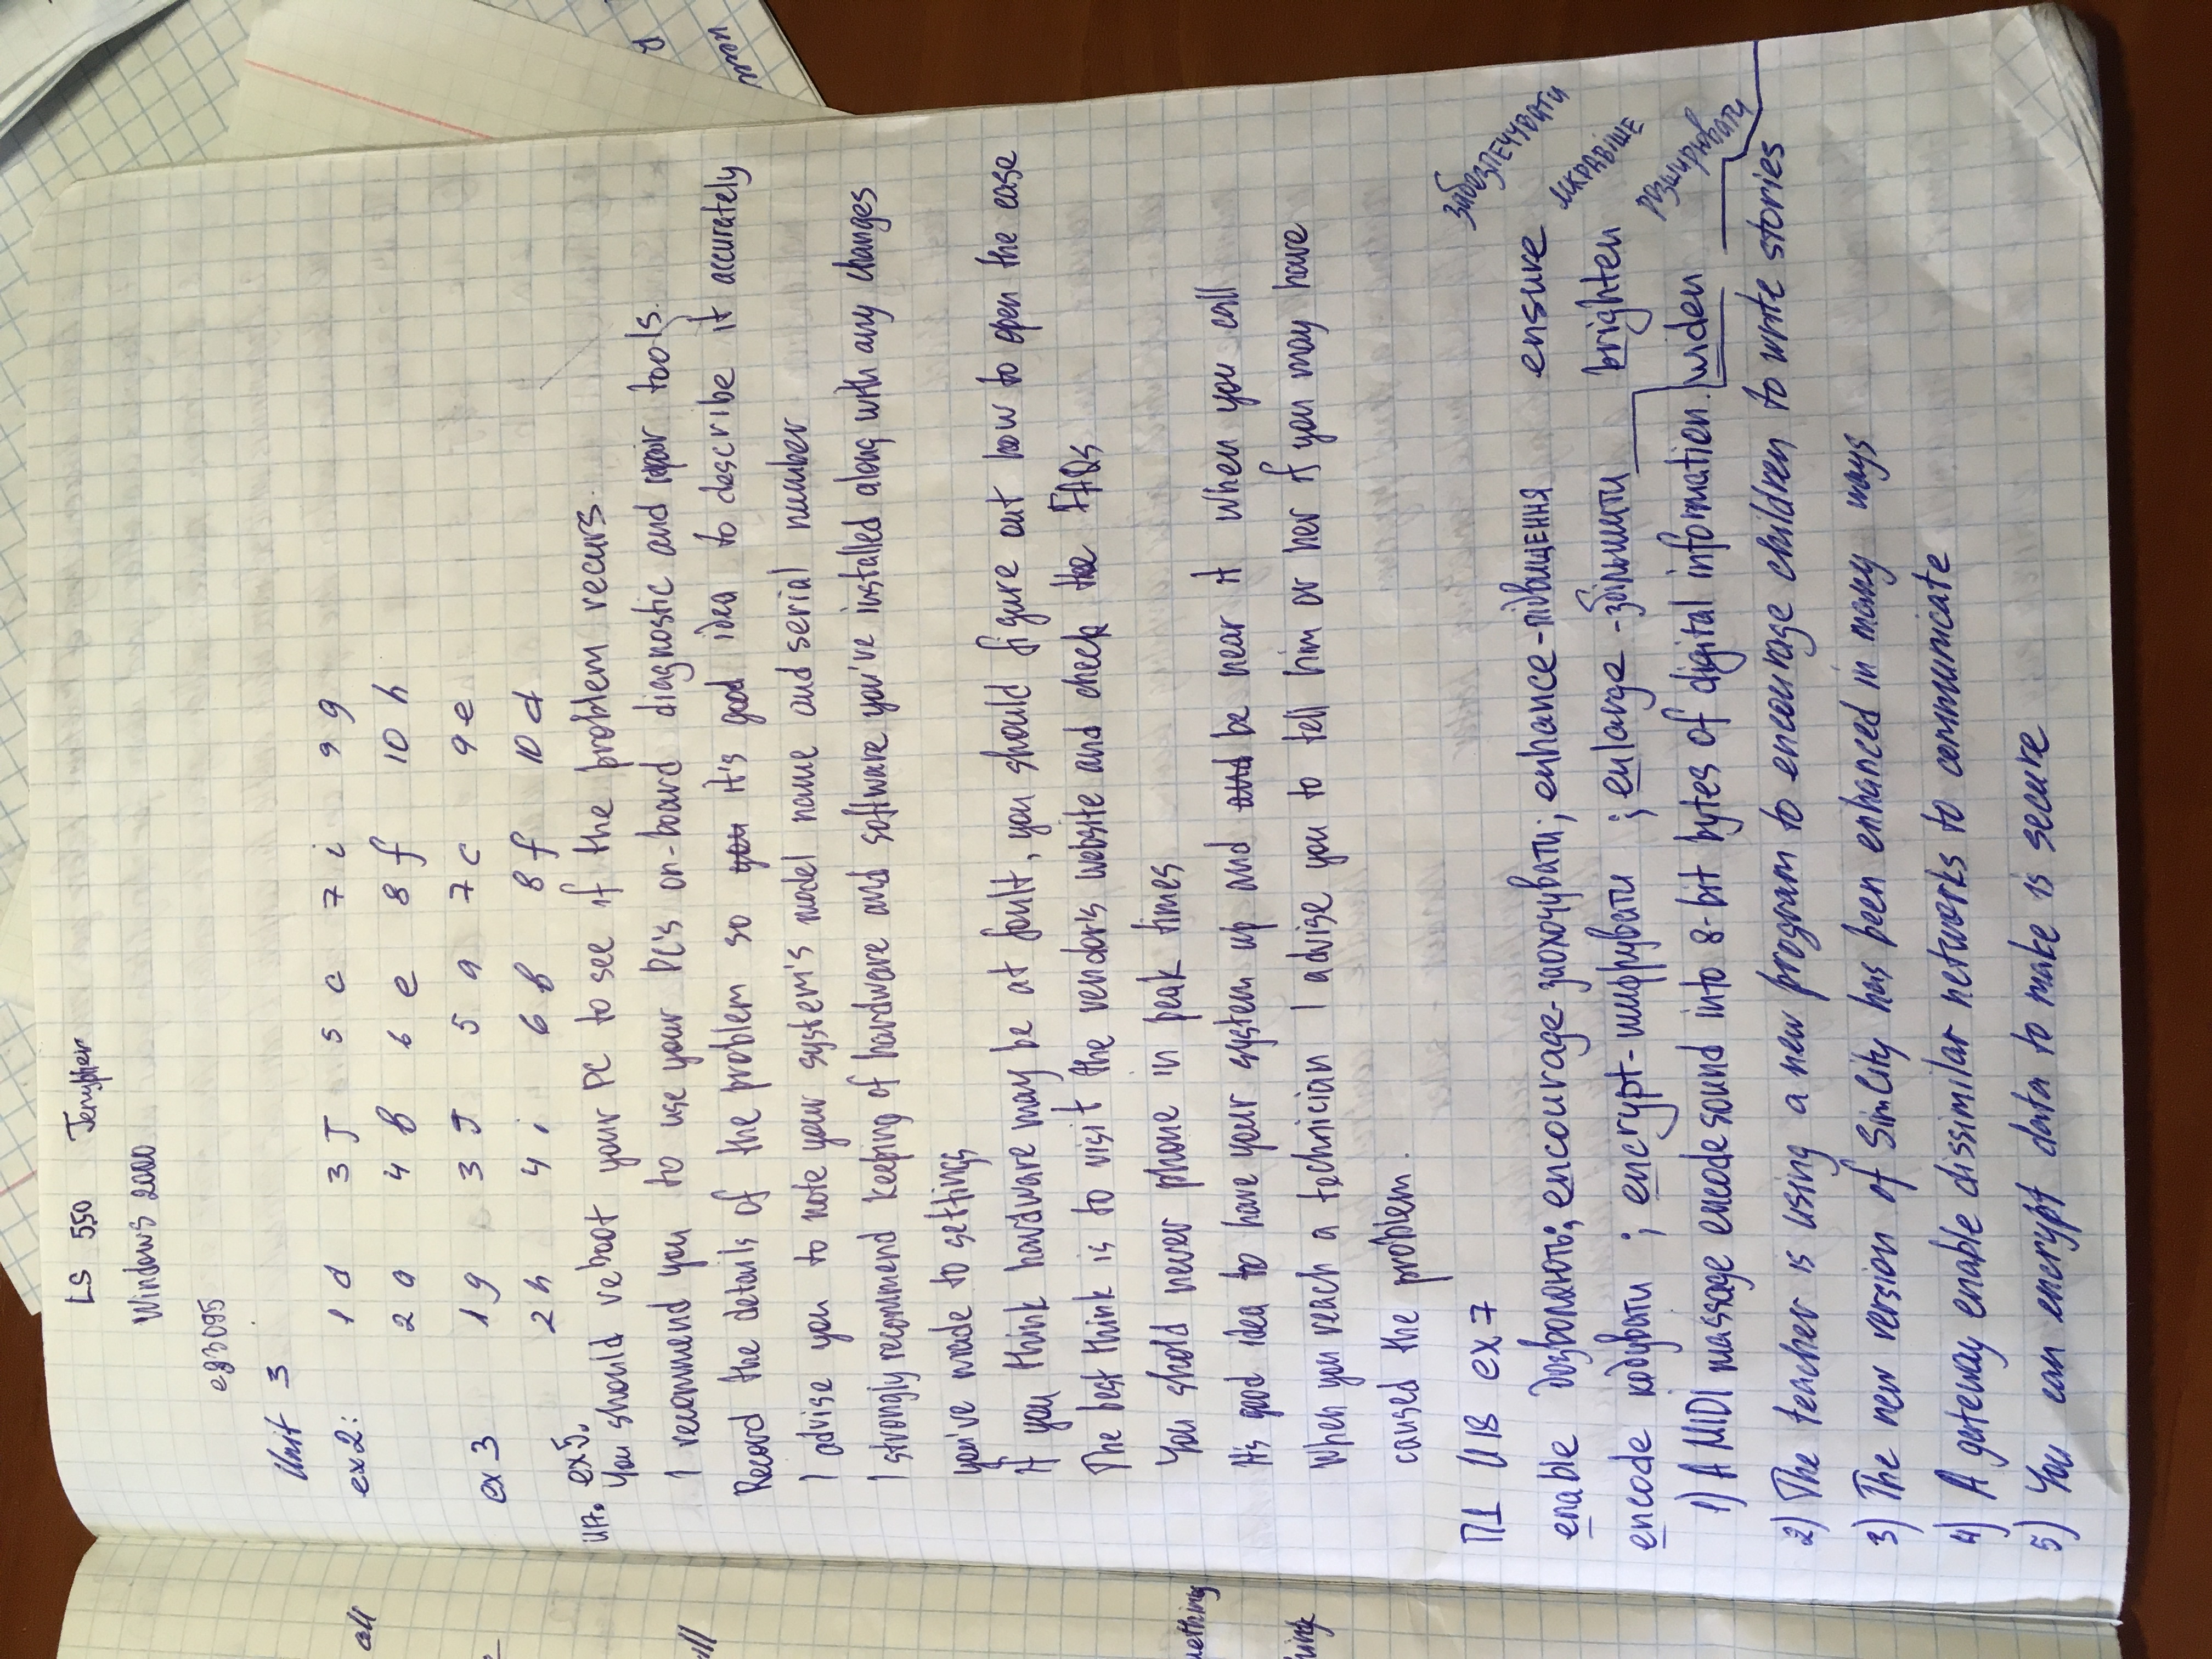 LS 550 Jenypher
Windows 2000
e93095
Unit 3
ex2: 1 d 3 J 5 c 7 i 9 g
2 a 4 b 6 e 8 f 10 h
ex 3 1 g 3 J 5 a 7 c 9 e
2 h 4 i 6 b 8 f 10 d
U17. ex5.
You should reboot your PC to see if the problem recurs.
I recommend you to use your PC's on-board diagnostic and repair tools.
Record the details of the problem so you it's good idea to describe it accurately
I advise you to note your system's model name and serial number
I strongly recommend keeping of hardware and software you've installed along with any changes
you've made to settings
If you think hardware may be at foult, you should figure out how to open the case
The best think is to visit the vendor's website and check the FAQs
You shold never phone in peak times
It's good idea to have your system up and and be near it when you call
When you reach a technician I advise you to tell him or her if you may have
caused the problem.
П1 U18 ex 7
enable дозволяють; encourage-заохочувати; enhance-підвищення ensure забезпечувати
encode кодувати ; encrypt-шифрувати ; enlarge -збільшити brighten яскравіше
1) A MIDI massage encode sound into 8-bit bytes of digital information. widen розширювати
2) The teacher is using a new program to encourage children to write stories
3) The new version of SimCity has been enhanced in many ways
4) A gateway enable dissimilar networks to communicate
5) You can encrypt data to make is secure
all
ething